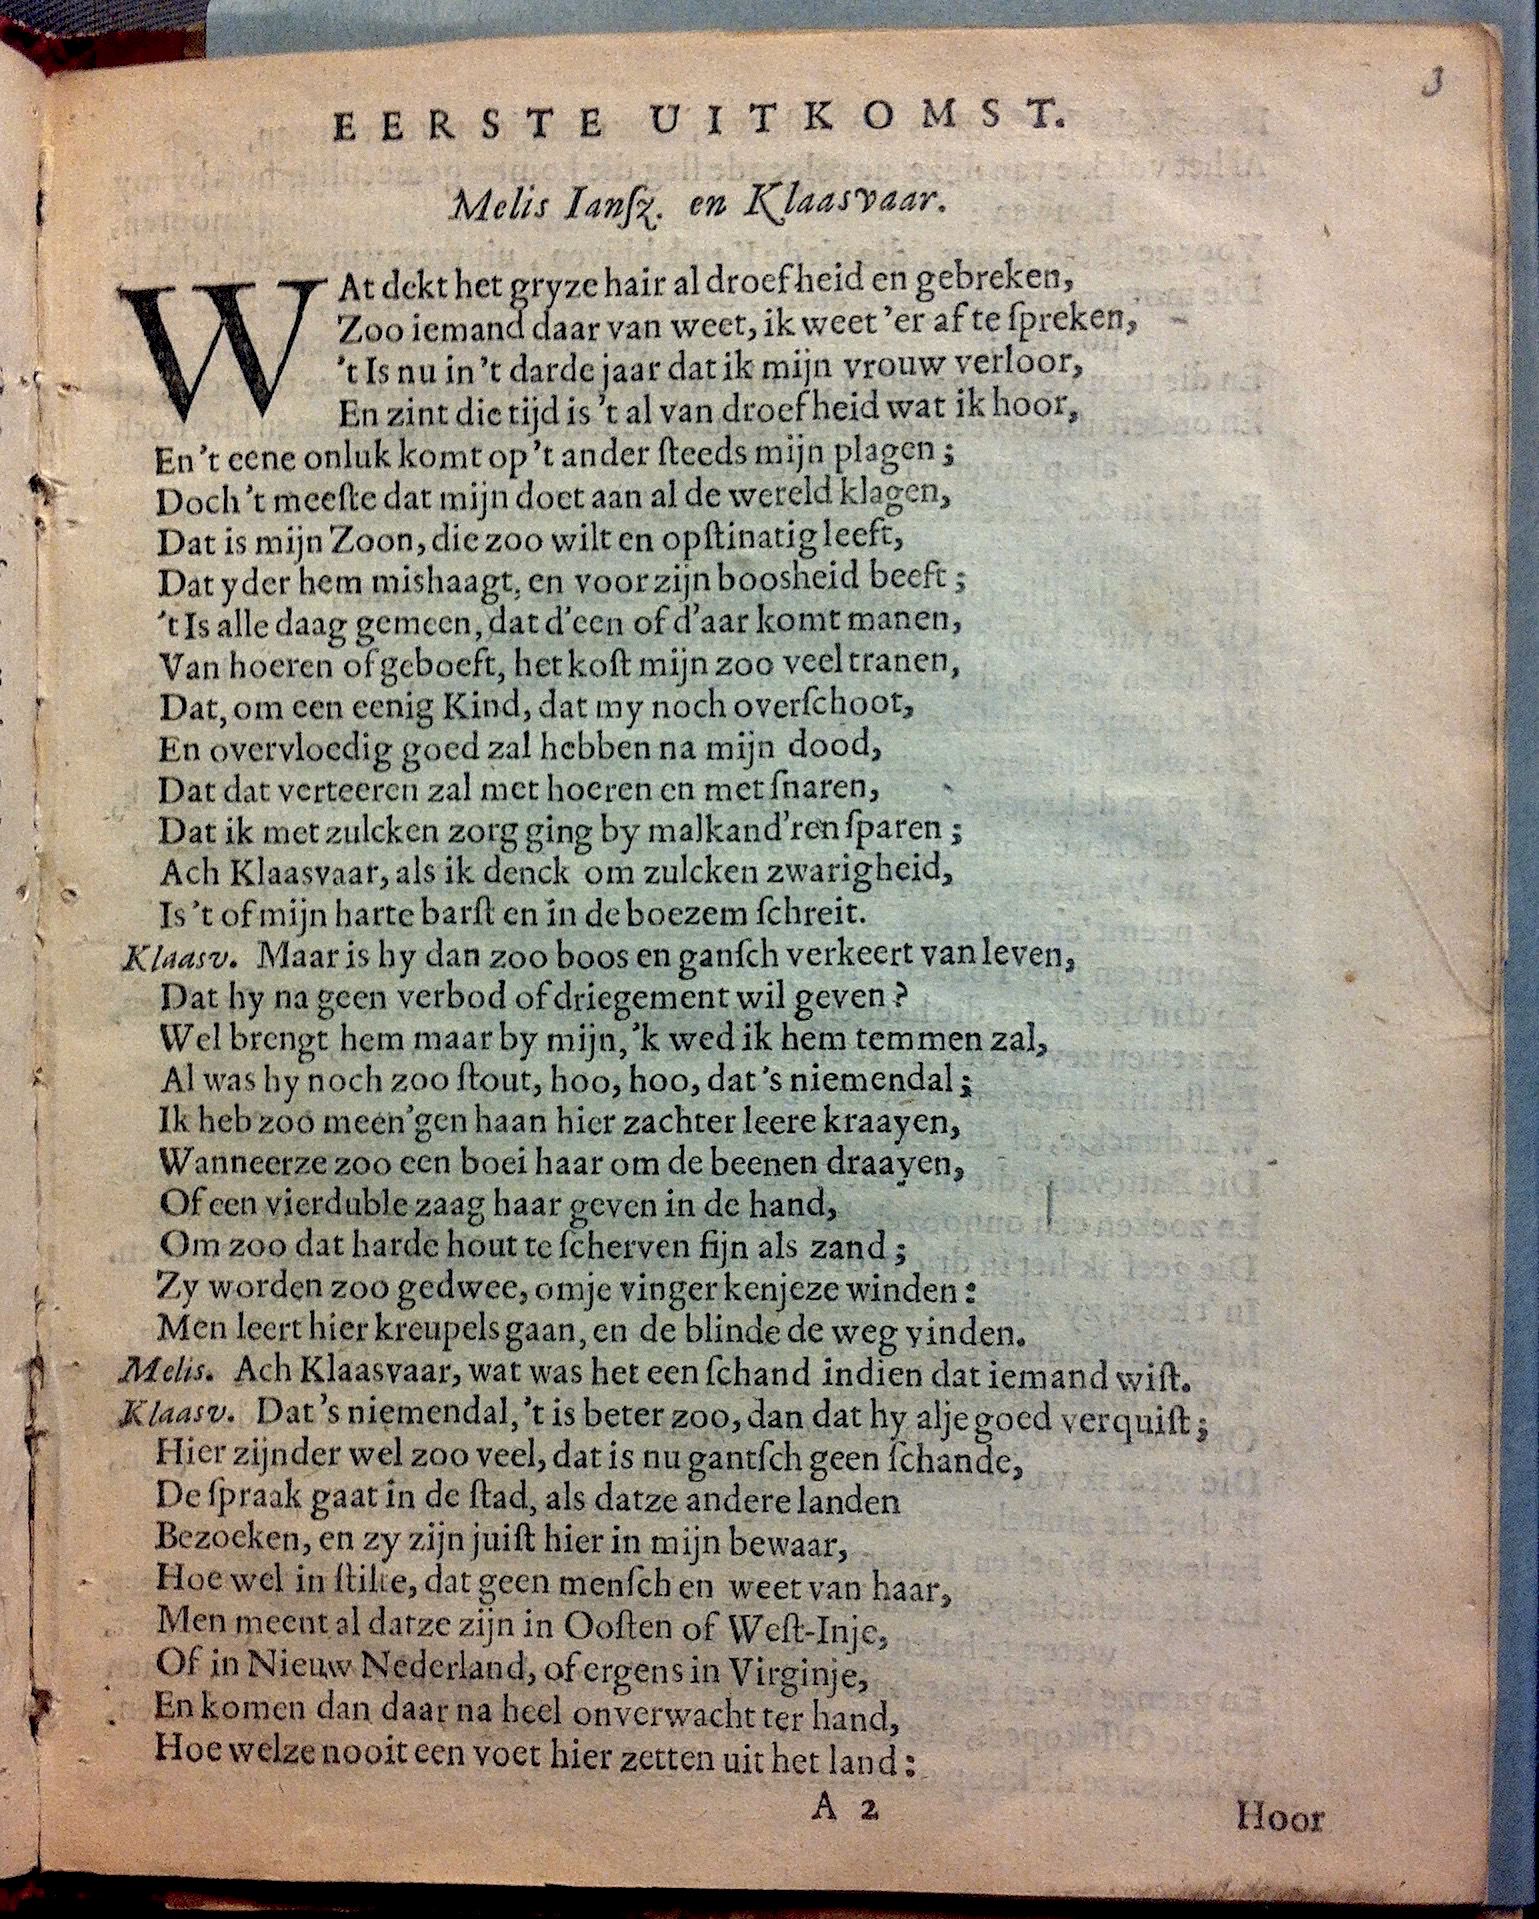 3
EERSTE UITKOMST.
Melis Ianſz. en Klaasvaar.
WAt dekt het gryze hair al droefheid en gebreken,
Zoo iemand daar van weet, ik weet 'er af te ſpreken,
't Is nu in 't darde jaar dat ik mijn vrouw verloor,
En zint die tijd is 't al van droefheid wat ik hoor,
En 't eene onluk komt op 't ander ſteeds mijn plagen;
Doch 't meeſte dat mijn doet aan al de wereld klagen,
Dat is mijn Zoon, die zoo wilt en opſtinatig leeft,
Dat yder hem mishaagt, en voor zijn boosheid beeft;
't Is alle daag gemeen, dat d'een of d'aar komt manen,
Van hoeren of geboeft, het koſt mijn zoo veel tranen,
Dat, om een eenig Kind, dat my noch overſchoot,
En overvloedig goed zal hebben na mijn dood,
Dat dat verteeren zal met hoeren en met ſnaren,
Dat ik met zulcken zorg ging by malkand'ren ſparen;
Ach Klaasvaar, als ik denck om zulcken zwarigheid,
Is 't of mijn harte barſt en in de boezem ſchreit.
Klaasv. Maar is hy dan zoo boos en ganſch verkeert van leven,
Dat hy na geen verbod of driegement wil geven?
Wel brengt hem maar by mijn, 'k wed ik hem temmen zal,
Al was hy noch zoo ſtout, hoo, hoo, dat's niemendal;
Ik heb zoo meen'gen haan hier zachter leere kraayen,
Wanneerze zoo een boei haar om de beenen draayen,
Of een vierduble zaag haar geven in de hand,
Om zoo dat harde hout te ſcherven fijn als zand;
Zy worden zoo gedwee, omje vinger kenjeze winden:
Men leert hier kreupels gaan, en de blinde de weg vinden.
Melis. Ach Klaasvaar, wat was het een ſchand indien dat iemand wiſt.
Klaasv. Dat's niemendal, 't is beter zoo, dan dat hy alje goed verquiſt;
Hier zijnder wel zoo veel, dat is nu gantſch geen ſchande,
De ſpraak gaat in de ſtad, als datze andere landen
Bezoeken, en zy zijn juiſt hier in mijn bewaar,
Hoe wel in ſtilte, dat geen menſch en weet van haar,
Men meent al datze zijn in Ooſten of Weſt-Inje,
Of in Nieuw Nederland, of ergens in Virginje,
En komen dan daar na heel onverwacht ter hand,
Hoe welze nooit een voet hier zetten uit het land:
A 2
Hoor